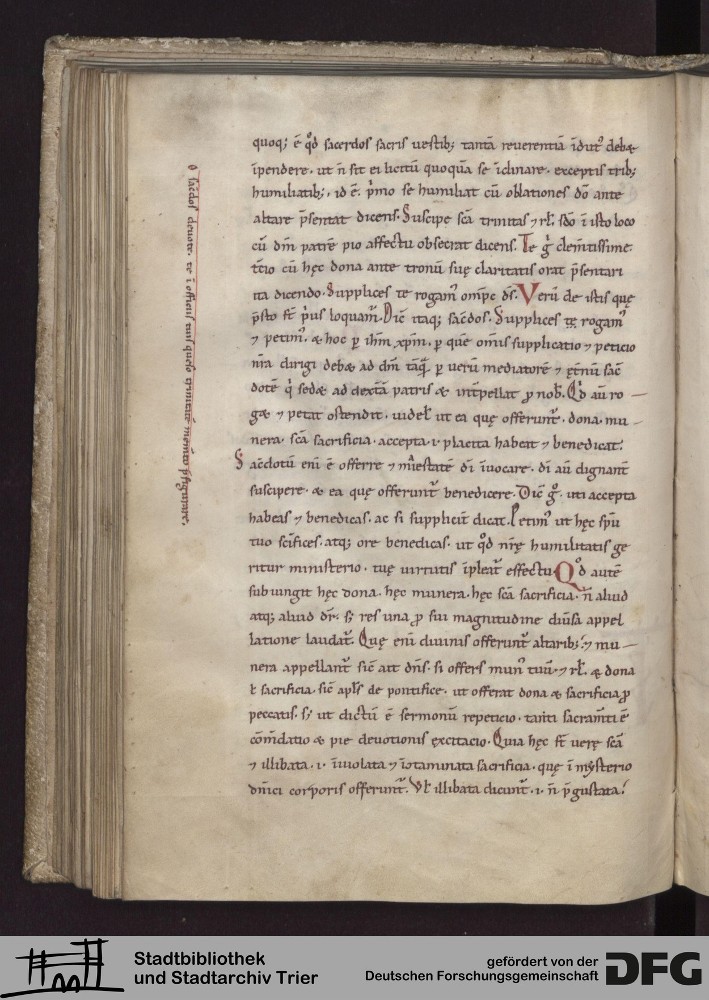 quoq; ē qd̊ sacerdos sacris uestib; tantā reuerentiā īdut᷒ debet
īpendere. ut n̄ sit ei licitū quoquā se īclinare. exceptis trib;
humiliatib; id ē. p̄mo se humiliat cū oblationes dō ante
altare p̄sentat dicens. Suscipe sc̄a trinitas ⁊ rl̄. sc̄do ī isto loco
cū dm̄ patrē pio affectu obsecrat dicens. Te g̊ clem̄tissime.
t̄cio cū hęc dona ante tronū suę claritatis orat p̄sentari
ita dicendo. Supplices te rogam᷒ omp̄c ds̄. Verū de istis quę
p̄sto st̄ p̄us loquam᷒. Dic̄ itaq; sac̄dos. Supplices te rogam᷒
⁊ petim᷒. & hoc ꝑ ih̄m xp̄m. ꝑ quē om̄is supplicatio ⁊ peticio
nr̄a dirigi debet ad dm̄ tāq̄ ꝑ uerū mediatorē ⁊ ęt̄nū sac̄
dotē q̇ sedet ad dext̄a patris & int̄pellat ꝓ nob̄. Qd̊ au̅ ro
gat ⁊ petat ostendit. uidel̄ ut ea quę offerunt᷒. dona. mu
nera. sc̄a sacrificia. accepta .i. placita habeat ⁊ benedicat.
Sac̄dotū eni̅ ē offerre ⁊ mīestatē dī īuocare. dī au̅ dignant̄
suscipere. & ea quę offerunt᷒ benedicere. Dic̄ g̊. uti accepta
habeas ⁊ benedicas. ac si supplicit̄ dicat. Petim᷒ ut hęc sp̄u
tuo sc̄ifices. atq; ore benedicas. ut qd̊ nr̄ę humilitatis ge
ritur ministerio. tuę uirtutis īpleat᷒ effectu. Qd̊ autē
subiungit hęc dona. hęc munera. hęc sc̄a sacrificia. n̄ aliud
atq; aliud dr̄. s; res una ꝓ sui magnitudine diu̅sa appel
latione laudat᷒. Quę eni̅ diuinis offerunt᷒ altarib; ⁊ mu
nera appellant᷒ sic̄ ait dn̄s. si offers mun᷒ tuū. ⁊ rl̄. & dona
ł sacrificia. sic̄ apl̄s de pontifice. ut offerat dona & sacrificia ꝓ
peccatis. s; ut dictū ē sermonū repeticio. tanti sacram̄ti ē
cōm̄datio & pie deuotionis excitacio. Quia hęc st̄ uerę sc̄a
⁊ illibata .i. īuiolata ⁊ īcōtaminata sacrificia. quę ī mysterio
dn̄ici corporis offerunt᷒. Vł illibata dicunt᷒ .i. n̄ p̄gustata.
o sac̄dos deuote. te ī officiis tuis quęso trinitatē memēto p̄figurare.
Stadtbibliothek
und Stadtarchiv Trier
gefördert von der
Deutschen Forschungsgemeinschaft
DFG